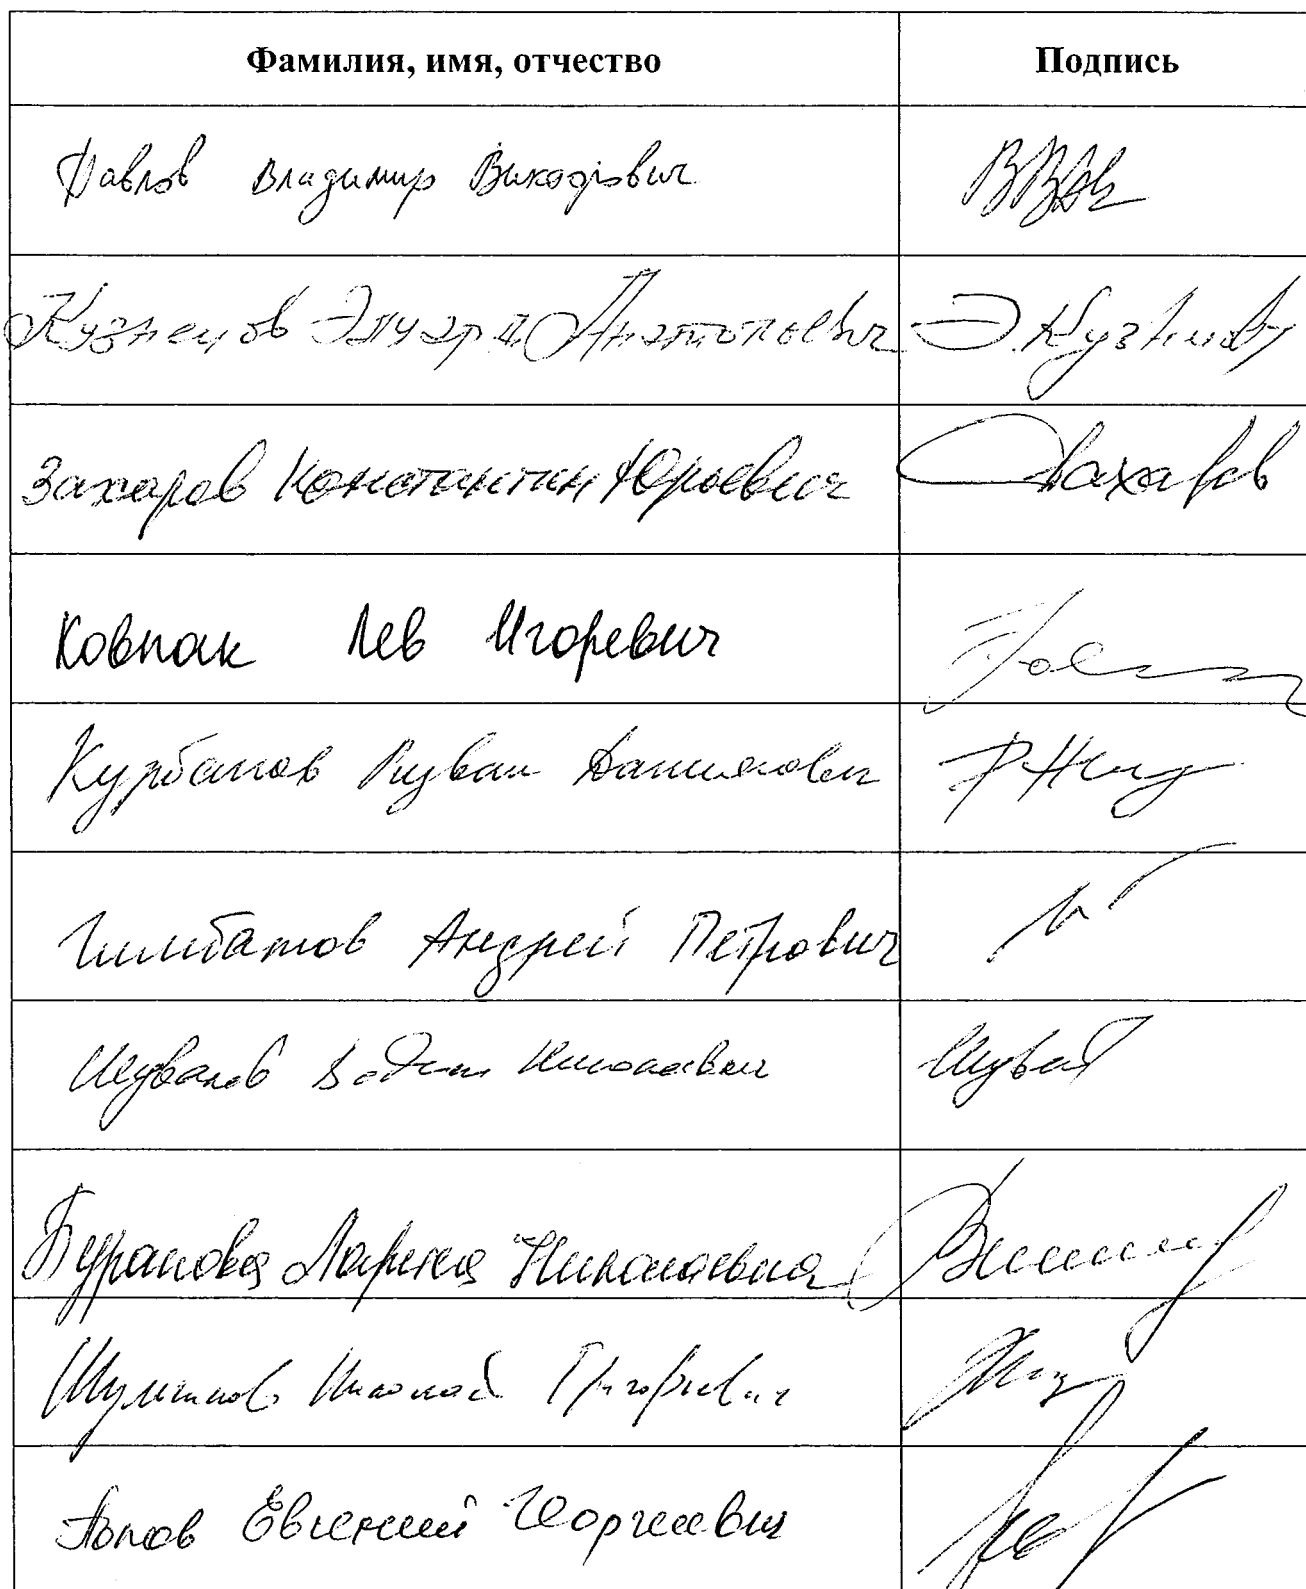 Фамилия, имя, отчество Подпись
Павлов Владимир Викторович
Кузнецов Эдуард Анатольевич Э.Кузнецов
Захаров Константин Юрьевич Захаров
Ковпак Лев Игоревич
Курбанов Ризван Даниялович
Гимбатов Андрей Петрович
Шувалов Вадим Николаевич Шувал
Буранова Лариса Николаевна
Николай Григорьевич
Попов Евгений Георгиевич